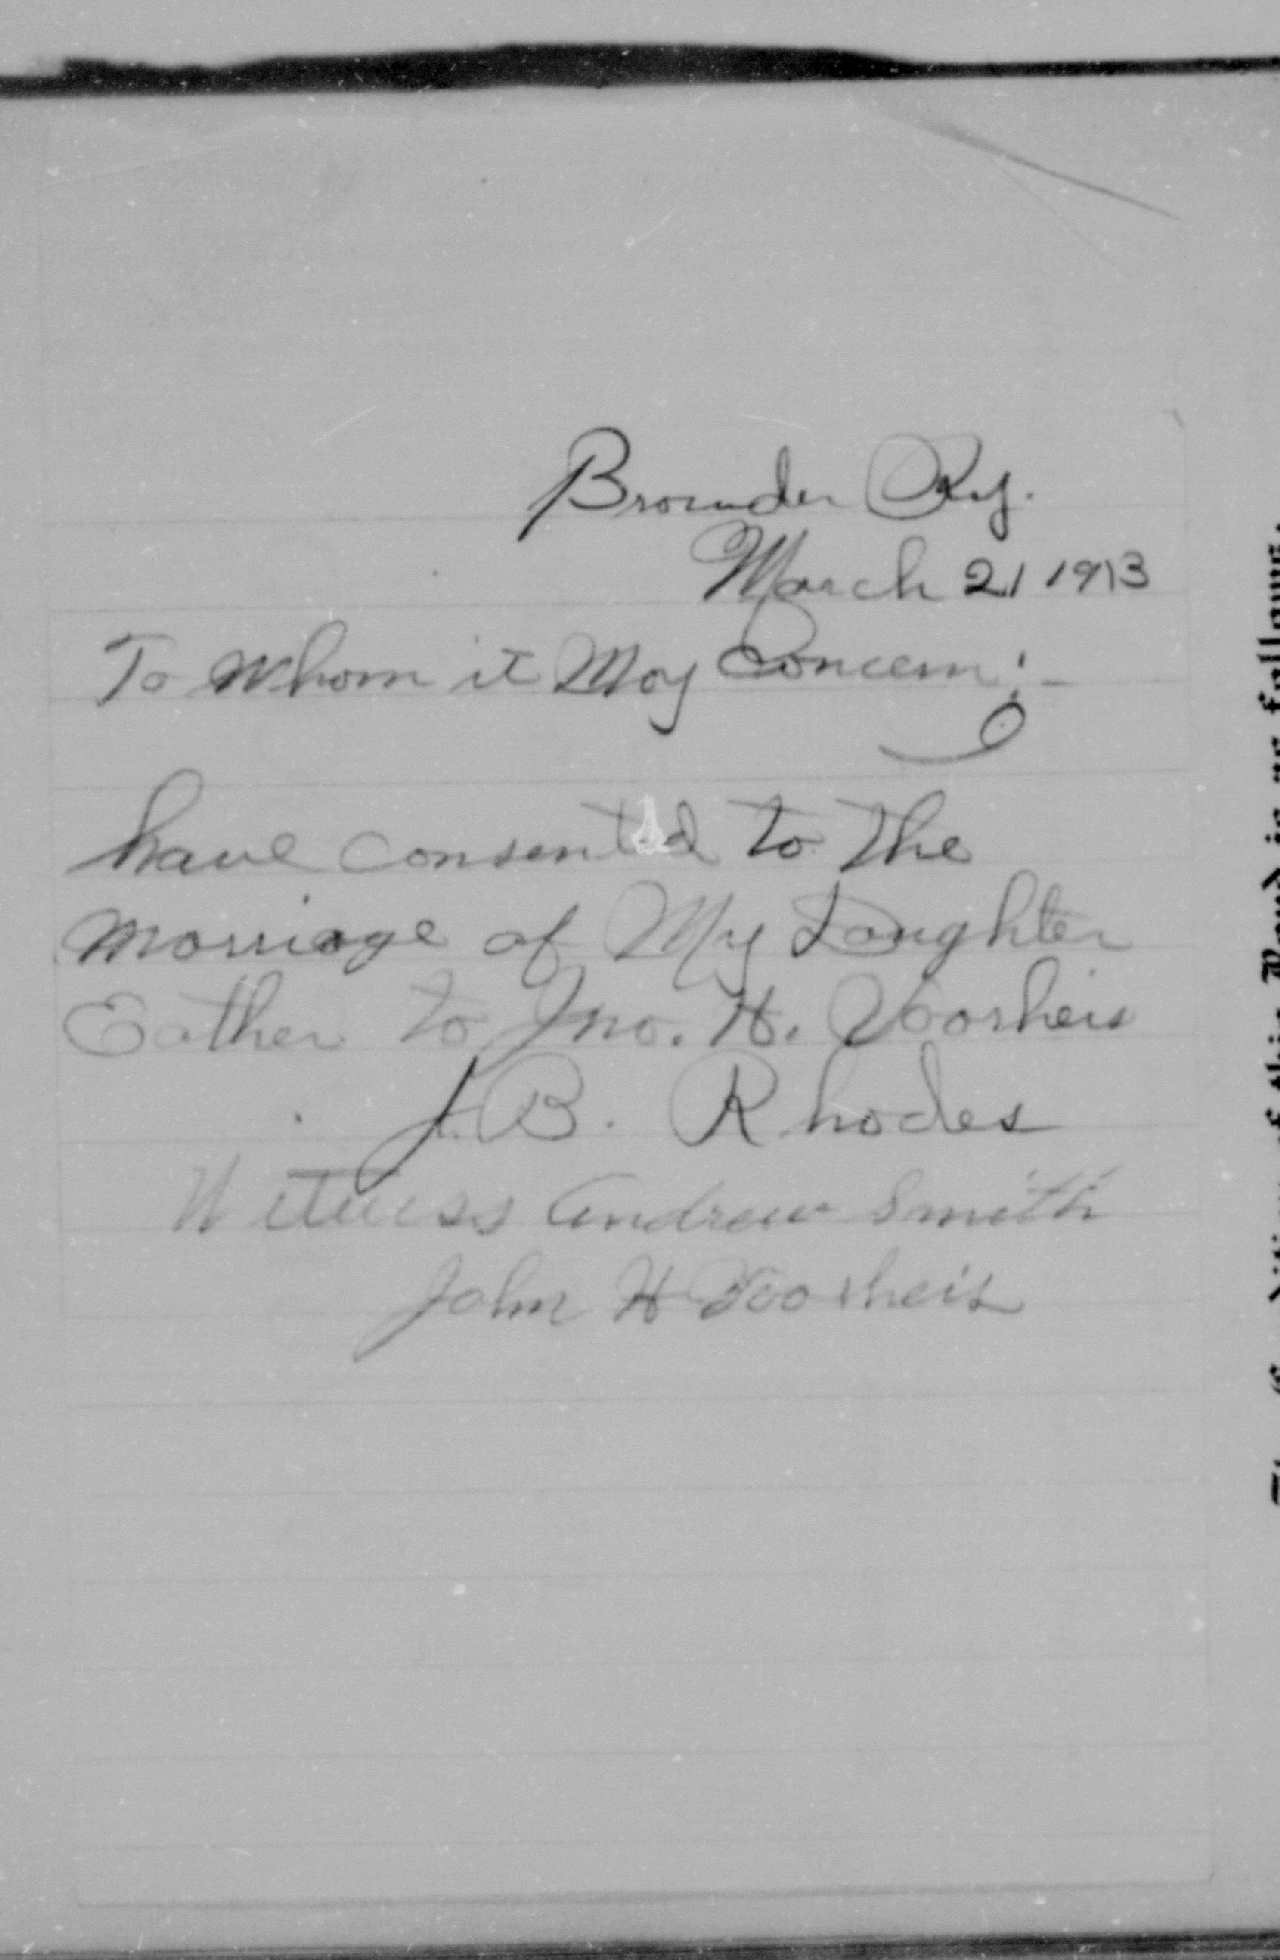 Browder Ky.
March 21 1913
To Whom it May Concern:-
I
have consented to the
marriage of My Daughter
Eather to Jno. H. Voorheis
J. B. Rhodes
Witness Andrew Smith
John H Voorheis